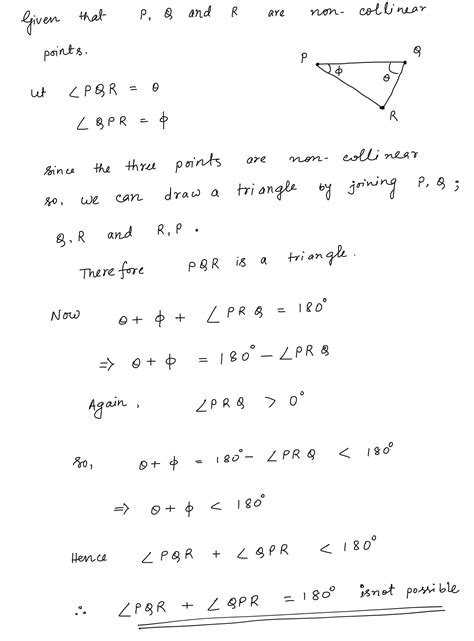 Given that P, Q and R are non-collinear
points.
P
Q
φ
θ
R
Let ∠PQR = θ
∠QPR = φ
Since the three points are non-collinear
so, we can draw a triangle by joining P, Q;
Q, R and R, P.
Therefore PQR is a triangle.
Now θ + φ + ∠PRQ = 180°
⇒ θ + φ = 180° - ∠PRQ
Again, ∠PRQ > 0°
So, θ + φ = 180° - ∠PRQ < 180°
⇒ θ + φ < 180°
Hence ∠PQR + ∠QPR < 180°
∴ ∠PQR + ∠QPR = 180° is not possible